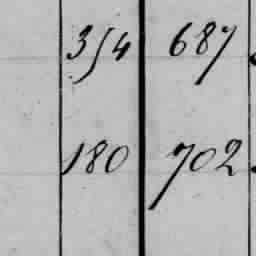 354 687
180 702